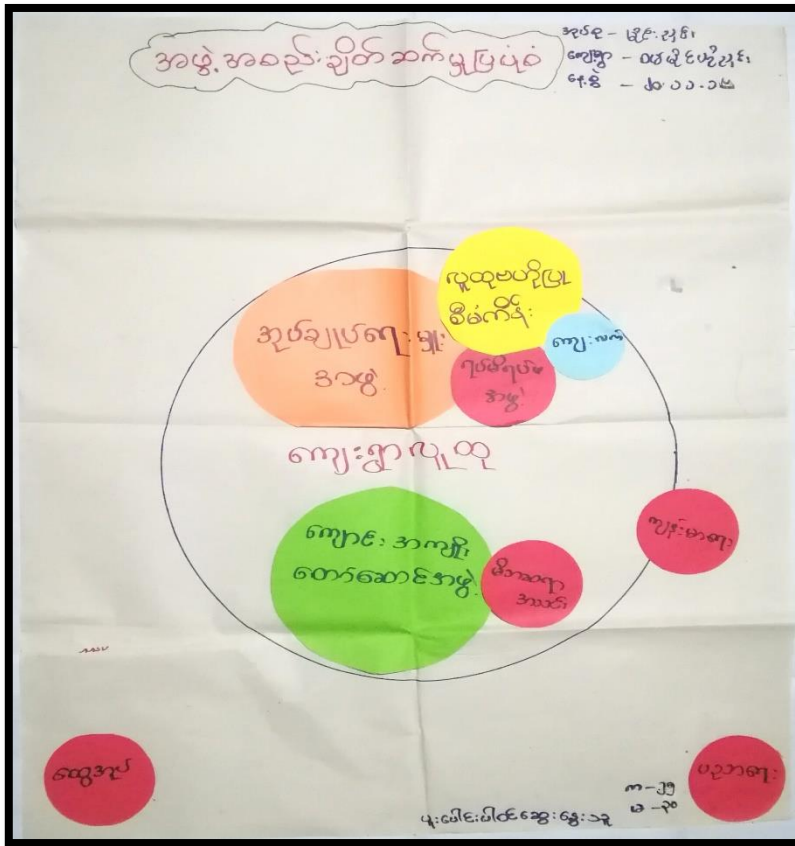 အဖွဲ့အစည်းချိတ်ဆက်မှုပြပုံစံ
အုပ်စု -
ကျေးရွာ -
နေ့စွဲ - ၂၀.၁၁.၁၈
လူထုဗဟိုပြု
စီမံကိန်း
အုပ်ချုပ်ရေးမှူး
အဖွဲ့
ကျေးလက်
ရပ်မိရပ်ဖ
အဖွဲ့
ကျေးရွာလူထု
ကျန်းမာရေး
ကျောင်း အကျိုး
တော်ဆောင်အဖွဲ့
မိဘဆရာ
အသင်း
ထွေအုပ်
ပညာရေး
က - ၂၅
မ - ၃၀
ပူးပေါင်းပါဝင်ဆွေးနွေးသူ